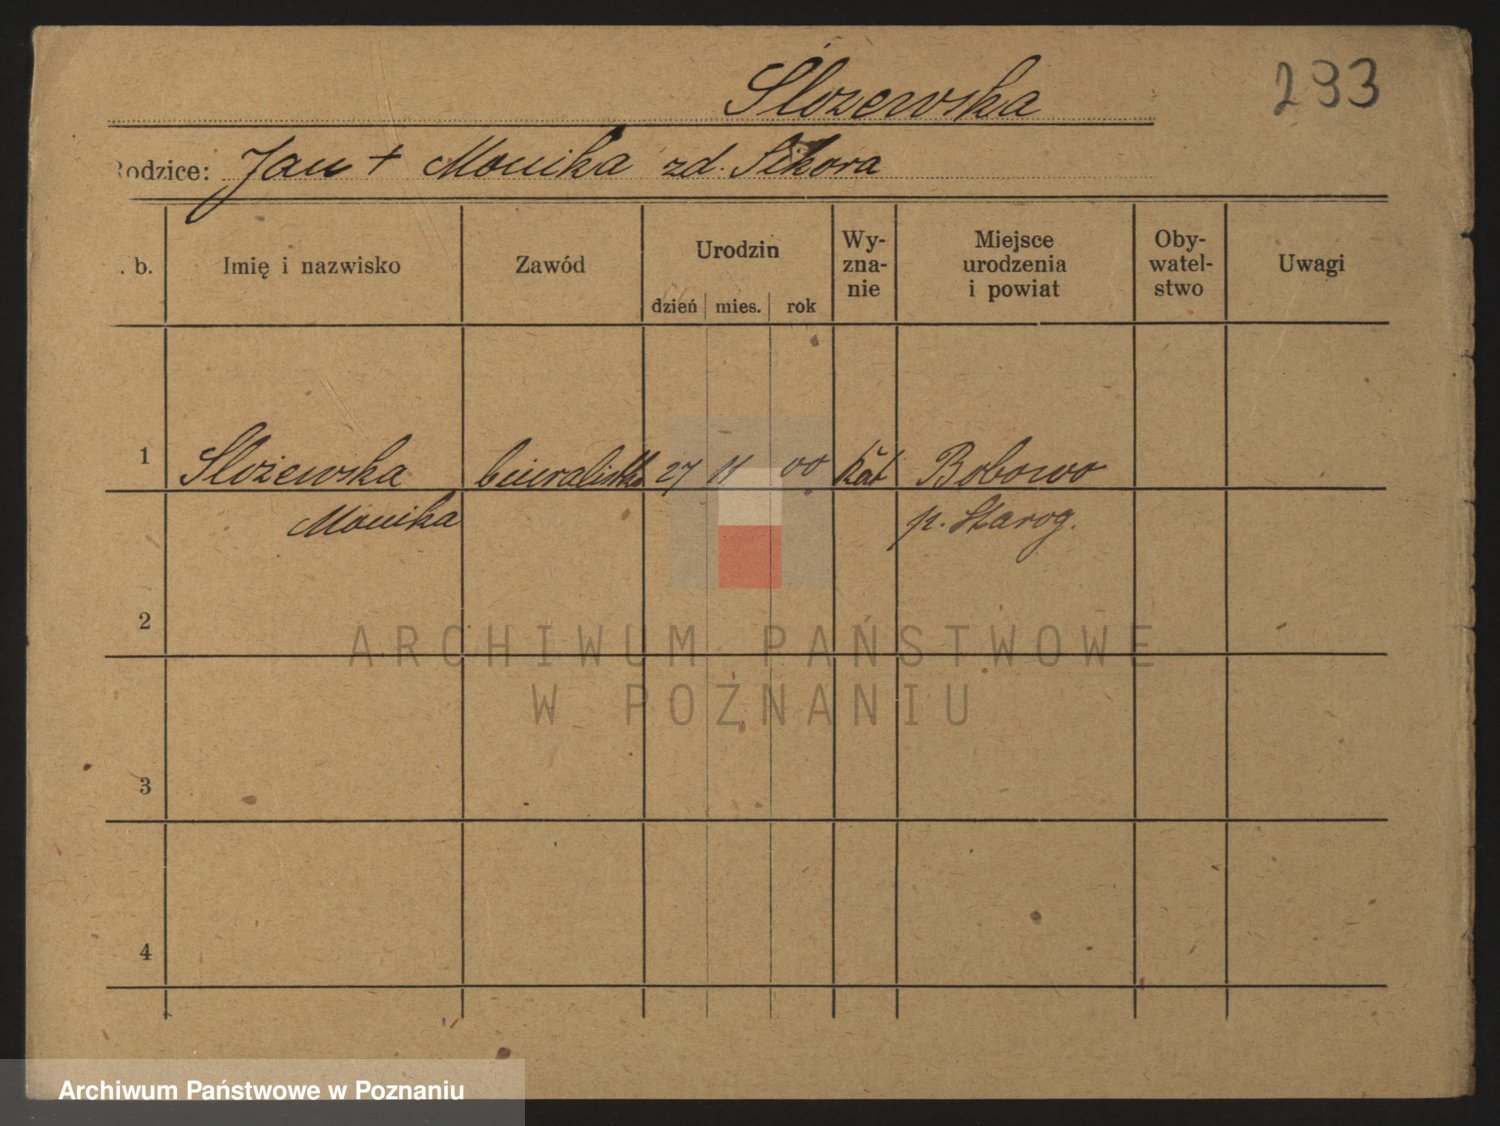 Slozewska
293
Rodzice: Jan + Monika zd. Sikora
. b. Imię i nazwisko Zawód Urodzin dzień mies. rok Wy-zna-nie Miejsce urodzenia i powiat Oby-watel-stwo Uwagi
1 Slożewska biuralistka 27 11 00 kat Bobowo
Monika p. Starog.
2
ARCHIWUM PAŃSTWOWE
W POZNANIU
3
4
Archiwum Państwowe w Poznaniu